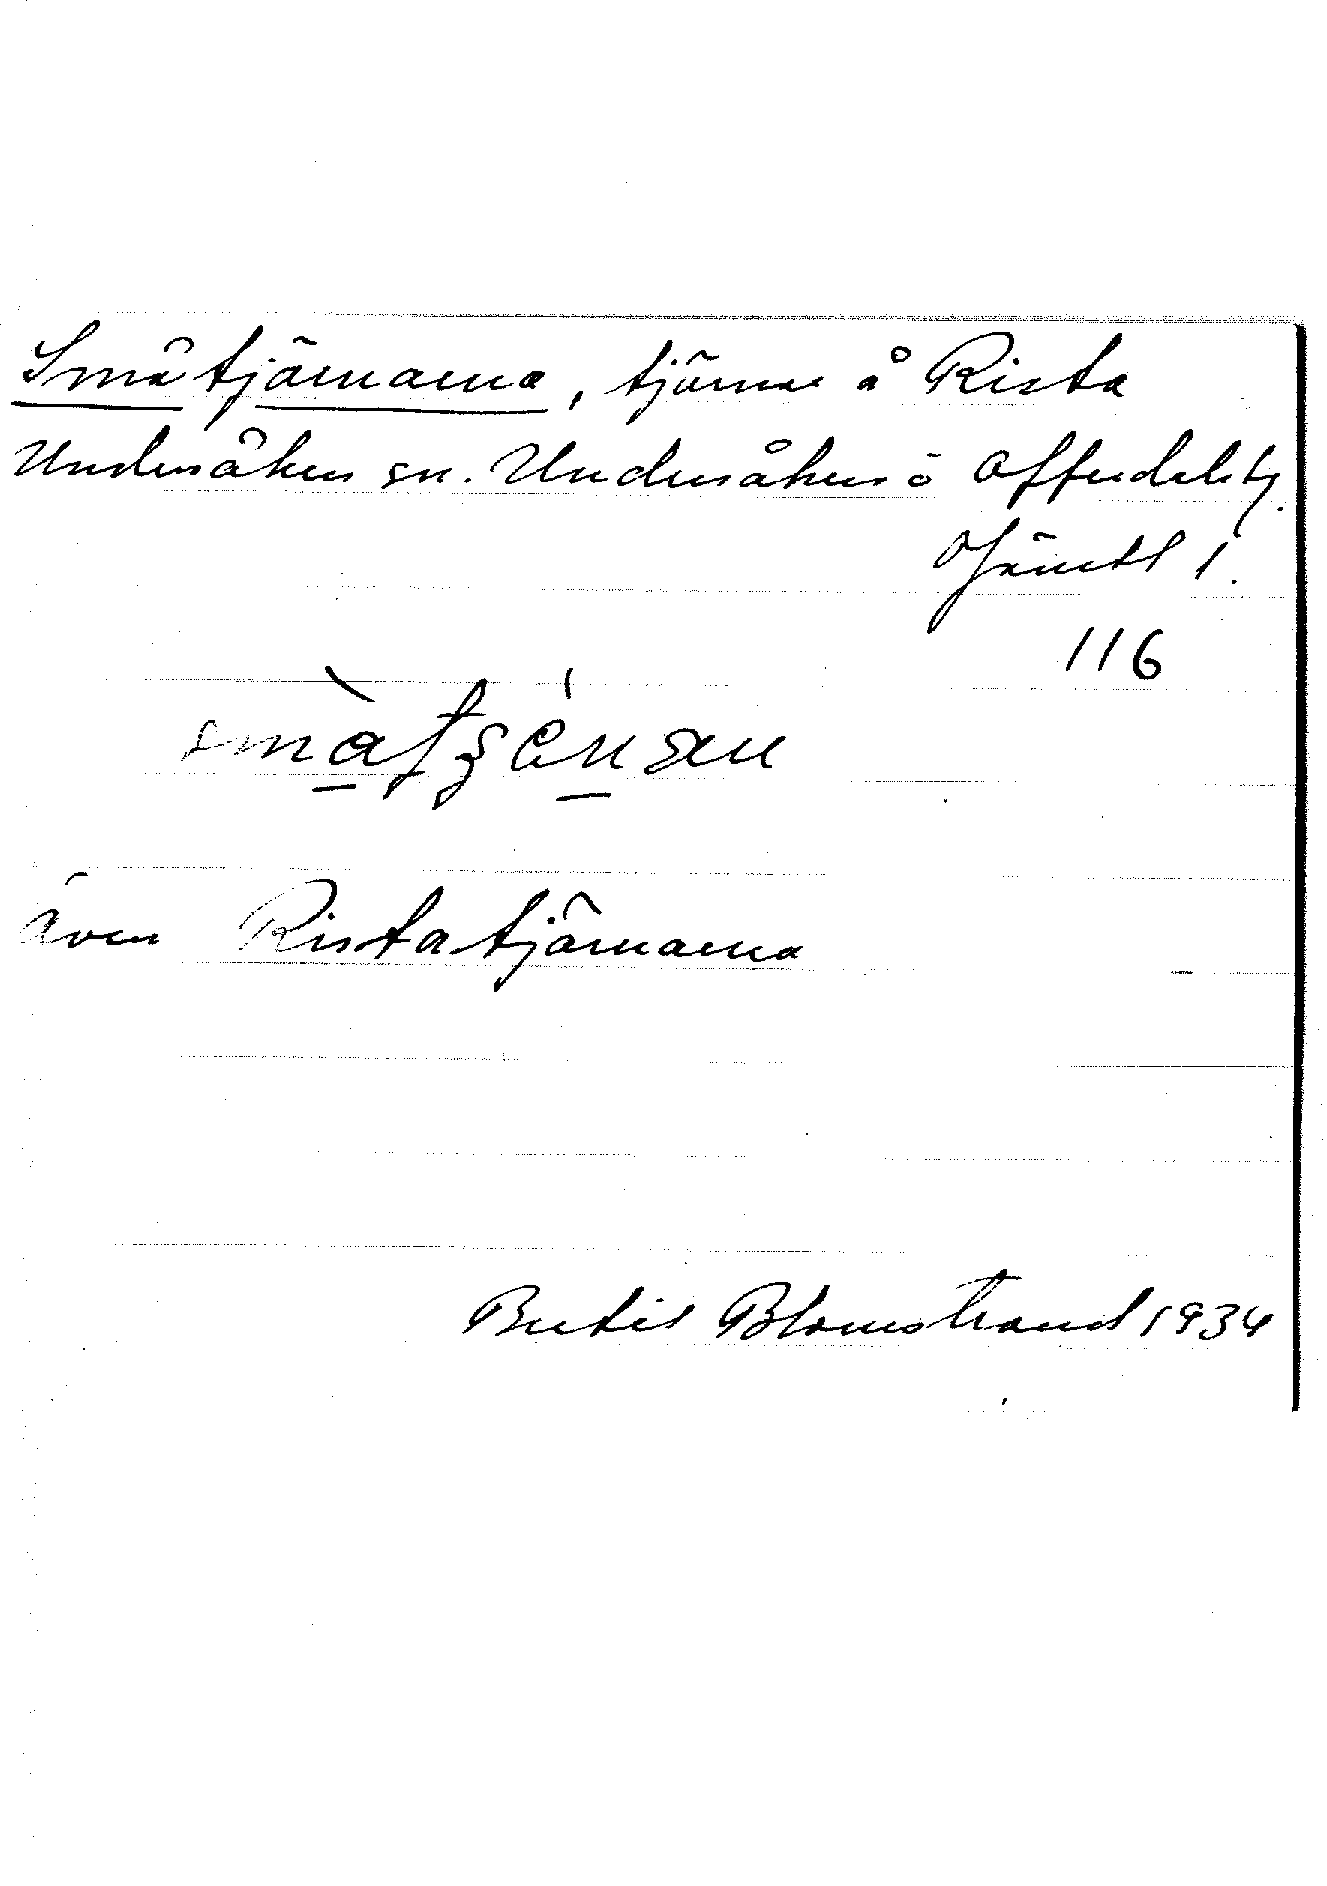 Småtjärnarna, tjärnar å Rista
Undersåkers sn. Undersåkers o Offerdals tg.
Jämtl l.
116
även Ristatjärnarna
Bertil Blomstrand 1934